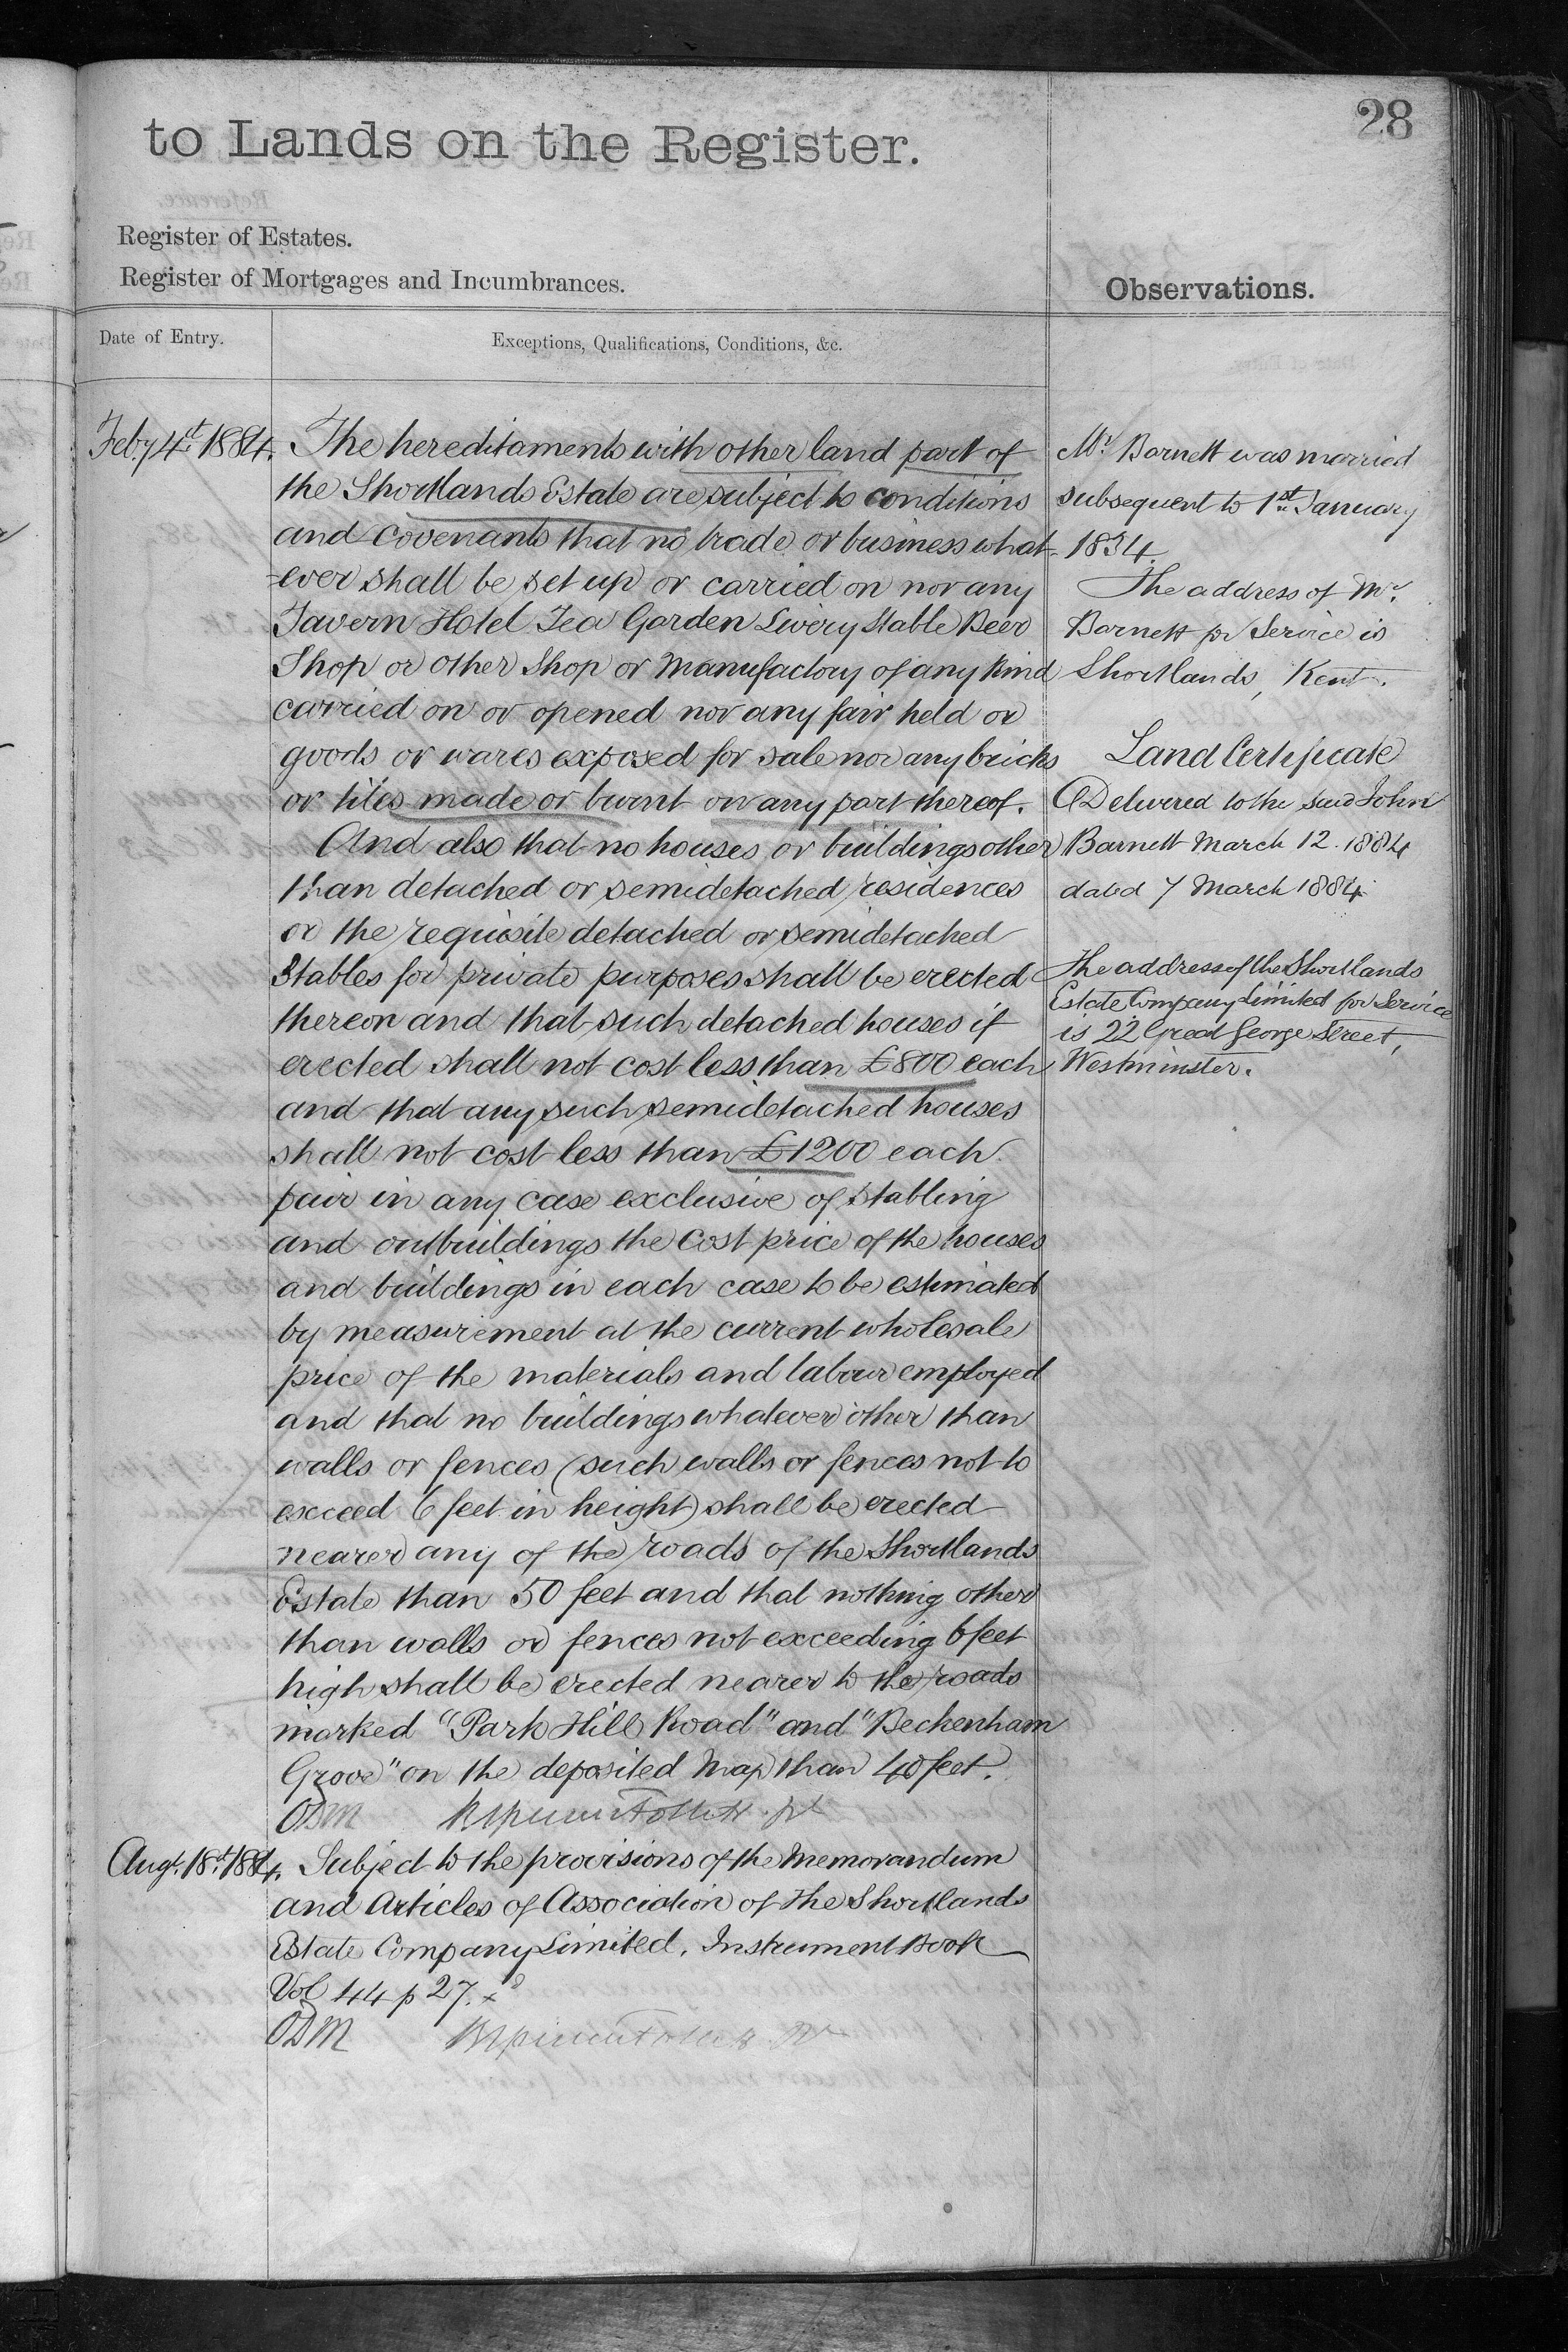 28
to Lands on the Register.
Register of Estates.
Register of Mortgages and Incumbrances.
Observations.
Date of Entry.
Exceptions, Qualifications, Conditions, &c.
Feby 4th 1884.
The hereditaments with other land part of
the Shortlands Estate are subject to conditions
and covenants that no trade or business what-
-ever shall be set up or carried on nor any
Tavern Hotel Tea Garden Livery Stable Beer
Shop or other Shop or Manufactory of any kind
carried on or opened nor any fair held or
goods or wares exposed for sale nor any bricks
or tiles made or burnt on any part thereof.
And also that no houses or buildings other
than detached or semidetached residences
or the requisite detached or semidetached
Stables for private purposes shall be erected
thereon and that such detached houses if
erected shall not cost less than £800 each
and that any such semidetached houses
shall not cost less than £1200 each
pair in any case exclusive of stabling
and outbuildings the cost price of the houses
and buildings in each case to be estimated
by measurement at the current wholesale
price of the materials and labour employed
and that no buildings whatever other than
walls or fences (such walls or fences not to
exceed 6 feet in height) shall be erected
nearer any of the roads of the Shortlands
Estate than 50 feet and that nothing other
than walls or fences not exceeding 6 feet
high shall be erected nearer to the roads
marked "Park Hill Road" and "Beckenham
Grove" on the deposited Map than 40 feet.
ODM
Augt. 18th 1884.
Subject to the provisions of the Memorandum
and Articles of Association of the Shortlands
Estate Company Limited. Instrument Book
Vol 44 p 27.
ODM
Mr. Barnett was married
subsequent to 1st January
1834.
The address of Mr.
Barnett for Service is
Shortlands, Kent.
Land Certificate
Delivered to the said John
Barnett March 12. 1884
dated 7 March 1884
The address of the Shortlands
Estate Company Limited for Service
is 22 Great George Street,
Westminster.